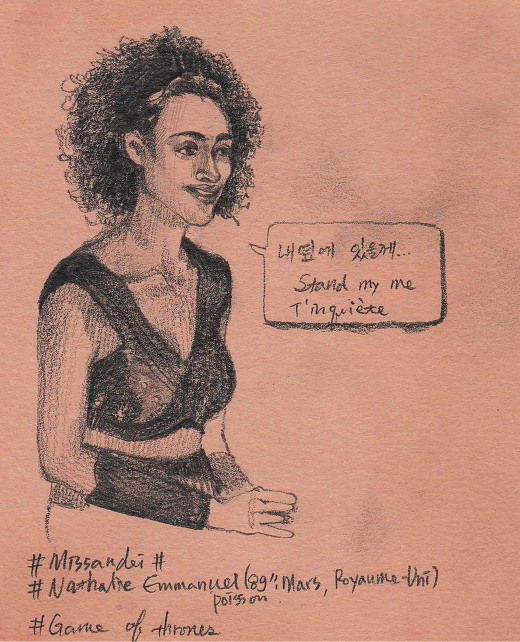 내 옆에 있을게...
Stand my me
T'inquiète
# Missandei #
# Nathalie Emmanuel (89": Mars, Royaume-Uni)
poisson
# Game of thrones